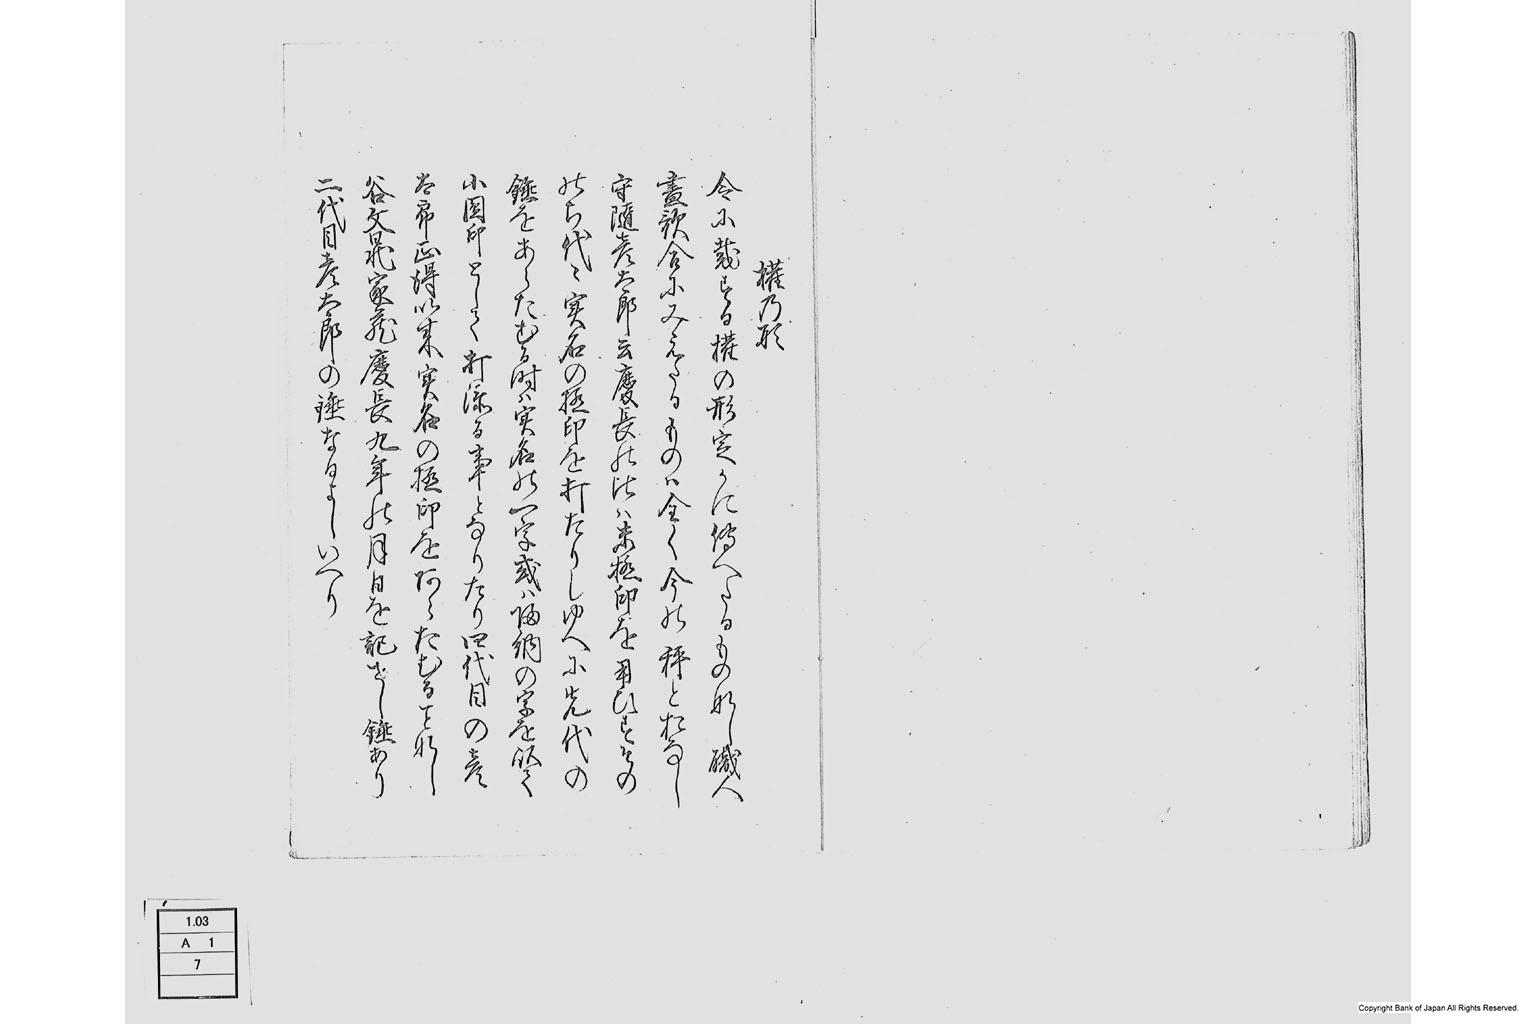 権乃形
令に載する権の形定かに傳へたるもの那し職人
畫歌合にみえたるものハ全く今の秤とおなし
守隨彦太郎云慶長の比ハ未極印を用ひすその
のち代々実名の極印を打たりしゆへに先代の
錘をあらたむる時ハ実名の一字或ハ帰納の字を以て
小圓印として打添る事となりたり四代目の彦
太郎正得以来実名の極印をあらたむること那し
谷文晁家蔵慶長九年の月日を記せし錘あり
二代目彦太郎の錘なるよしいへり
1.03
A 1
7
Copyright Bank of Japan All Rights Reserved.